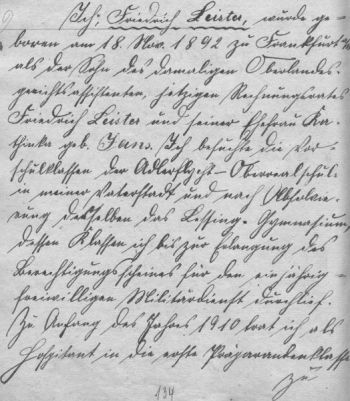 Ich, Friedrich Leister, wurde ge-
boren am 18. Nov. 1892 zu Frankfurt a/M
als der Sohn des damaligen Oberlandes-
gerichtsassistenten, jetzigen Rechnungsrates
Friedrich Leister und seiner Ehefrau Ka-
thinka geb. Jans. Ich besuchte die Vor-
schulklassen der Adlerflycht-Oberrealschule
in meiner Vaterstadt und nach Absolvie-
rung derselben das Lessing-Gymnasium,
dessen Klassen ich bis zur Erlangung des
Berechtigungsscheines für den einjährig-
freiwilligen Militärdienst durchlief.
Zu Anfang des Jahres 1910 trat ich als
Hospitant in die erste Präparandenklasse
zu
134